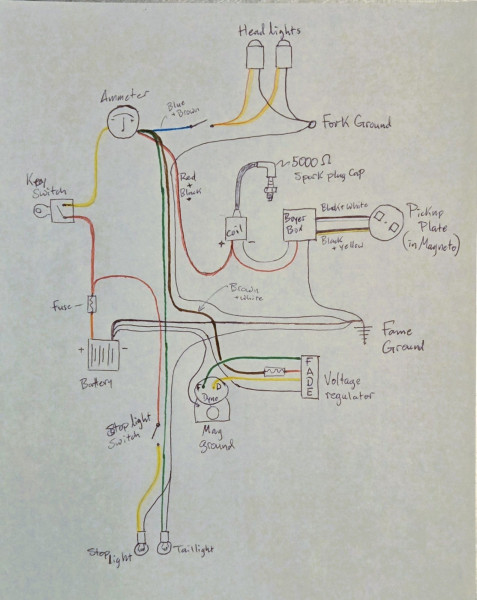 Headlights
Ammeter
Blue
+ Brown
Fork Ground
Key
Switch
Red
+
Black
5000 Ω
Spark plug Cap
+
coil
-
Boyer
Box
Black + White
Black
+ yellow
Pickup
Plate
(in Magneto)
Fuse
Brown
+ white
+
-
Battery
Fame
Ground
F
D
Dyno
F
A
D
E
Voltage
regulator
Mag
ground
Stop light
Switch
Stop
light
Taillight